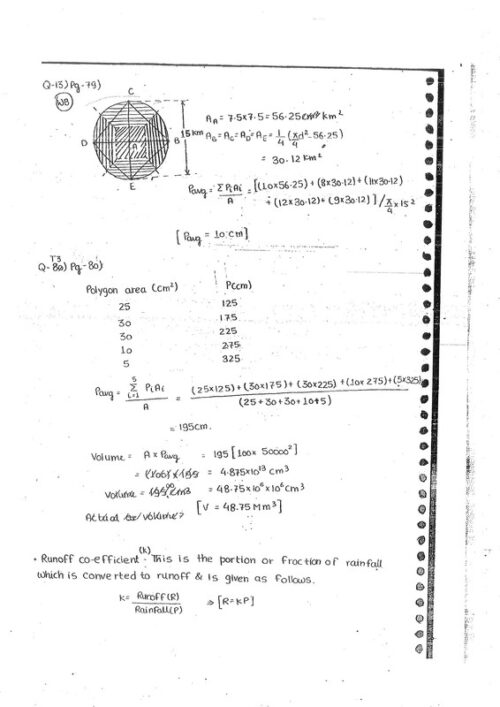 Q-13) Pg-79)
WB
C
D
A
B
E
15 km
A_A = 7.5x7.5 = 56.25 km²
A_B = A_C = A_D = A_E = 1/4 (πd²/4 - 56.25)
= 30.12 km²
Pavg = ΣPiAi/A = [(10x56.25) + (8x30.12) + (11x30.12)
+ (12x30.12) + (9x30.12)] / π/4 x 15²
[Pavg = 10 cm]
T3
Q-80) Pg-80)
Polygon area (cm²) P(cm)
25 125
30 175
30 225
10 275
5 325
Pavg = 5 Σ i=1 PiAi / A = (25x125) + (30x175) + (30x225) + (10x275) + (5x325) / (25+30+30+10+5)
= 195cm.
Volume = A x Pavg = 195 [100x 50000²]
= (100) x 195 = 4.875x10¹³ cm³
Volume = = 48.75x10⁶ x10⁶ cm³
[V = 48.75 Mm³]
• Runoff co-efficient (k) - This is the portion or fraction of rainfall
which is converted to runoff & is given as follows.
K = Runoff(R) / Rainfall(P) ⇒ [R=KP]